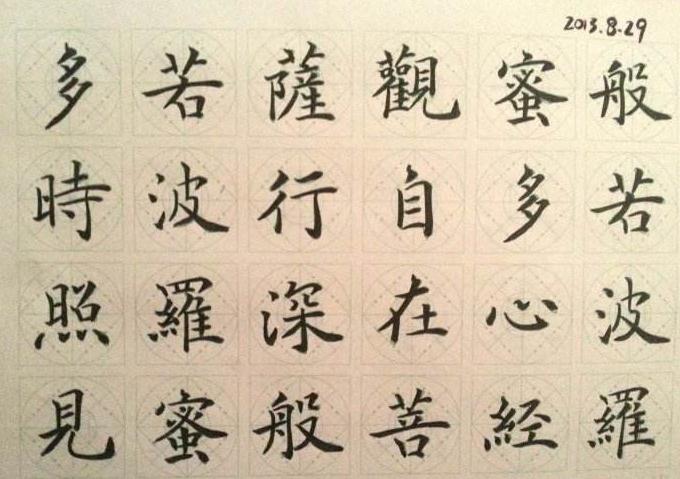 2013.8.29
般若波羅
蜜多心経
觀自在菩
薩行深般
若波羅蜜
多時照見